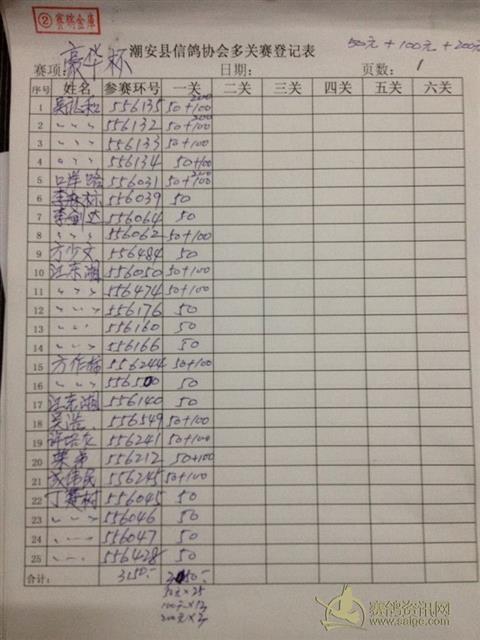 ② 赛鸽金库
潮安县信鸽协会多关赛登记表
50元 + 100元 + 200元
赛项: 豪华杯 日期: 页数: 1
序号 姓名 参赛环号 一关 二关 三关 四关 五关 六关
1 556135 50+100 200
2 〃 〃 〃 556132 50+100 200
3 〃 〃 〃 556133 50+100
4 〃 〃 〃 556134 50+100
5 口岸路 556031 50+100 200
6 李林标 556039 50
7 李剑达 556064 50
8 〃 〃 〃 556062 50+100
9 方少文 556484 50
10 江东湖 556050 50+100
11 〃 〃 〃 556474 50+100
12 〃 〃 〃 556176 50
13 〃 〃 〃 556160 50
14 〃 〃 〃 556166 50
15 方作 556244 50+100
16 〃 〃 〃 556500 50
17 江东湖 556140 50
18 吴浩 556549 50+100
19 许培 556241 50+100
20 556212 50+100
21 伟民 556245 50+100
22 丁楚树 556045 50
23 〃 〃 〃 556046 50
24 〃 〃 〃 556047 50
25 〃 〃 556428 50
合计: 3150.-
50元×25
100元×12
200元×3
赛鸽资讯网
www.saige.com